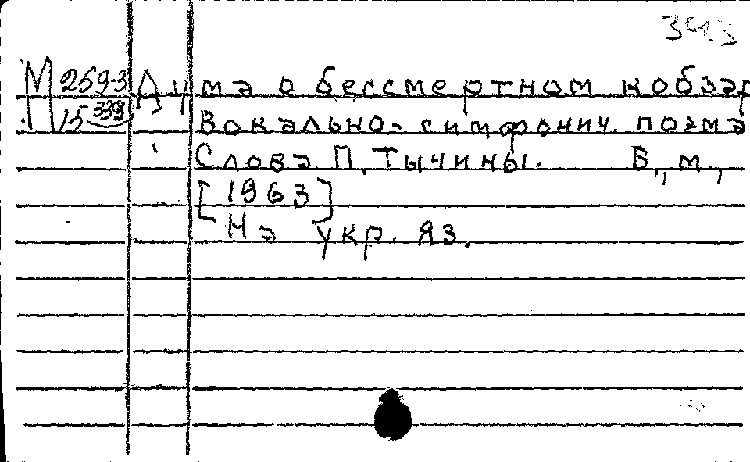 343
М 2593
15 339
Дума о бессмертном кобзар
Вокально-симфонич. поэма
Слова П. Тычины. Б., м.,
[1963]
На укр. яз.